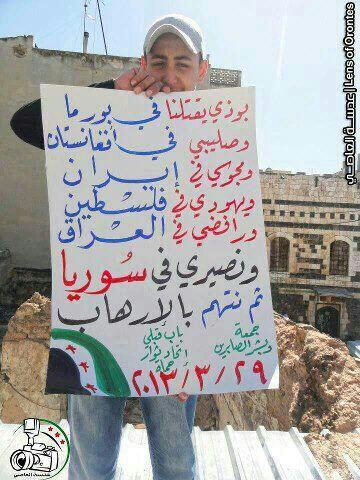 بوذي يقتلنا في بورما
وصليبي في أفغانستان
ومجوسي في إيران
ويهودي في فلسطين
ورافضي في العراق
ونصيري في سوريا
ثم نتهم بالإرهاب
جمعة
وبشر الصابرين
باب قبلي
إتحاد ثوار
حماة
٢٠١٣/٣/٢٩
عدسة العاصي | Lens of Orontes
عدسة العاصي